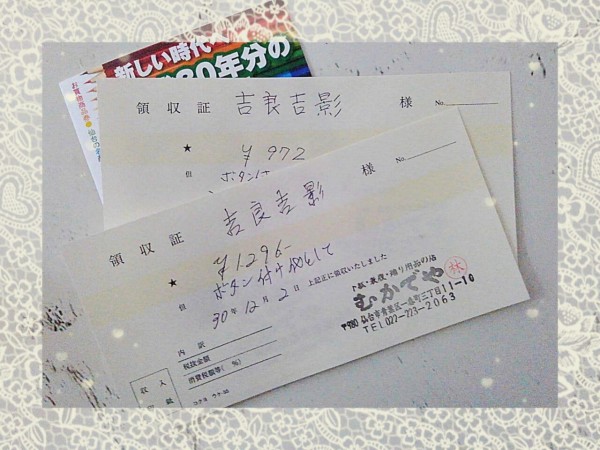 新しい時代へ
30年分の
お買物商品券
仙台の名
領収証 吉良吉影 様 No.
★ ¥972
但 ボタン付
領収証 吉良吉影 様 No.
★ ¥1,296-
但 ボタン付け代として
30年12月2日 上記正に領収いたしました
内訳
税抜金額
消費税額等(%)
収入
コクヨ ウケ-55
むかでや
林
〒980 仙台市青葉区一番町三丁目11-10
TEL022-223-2063